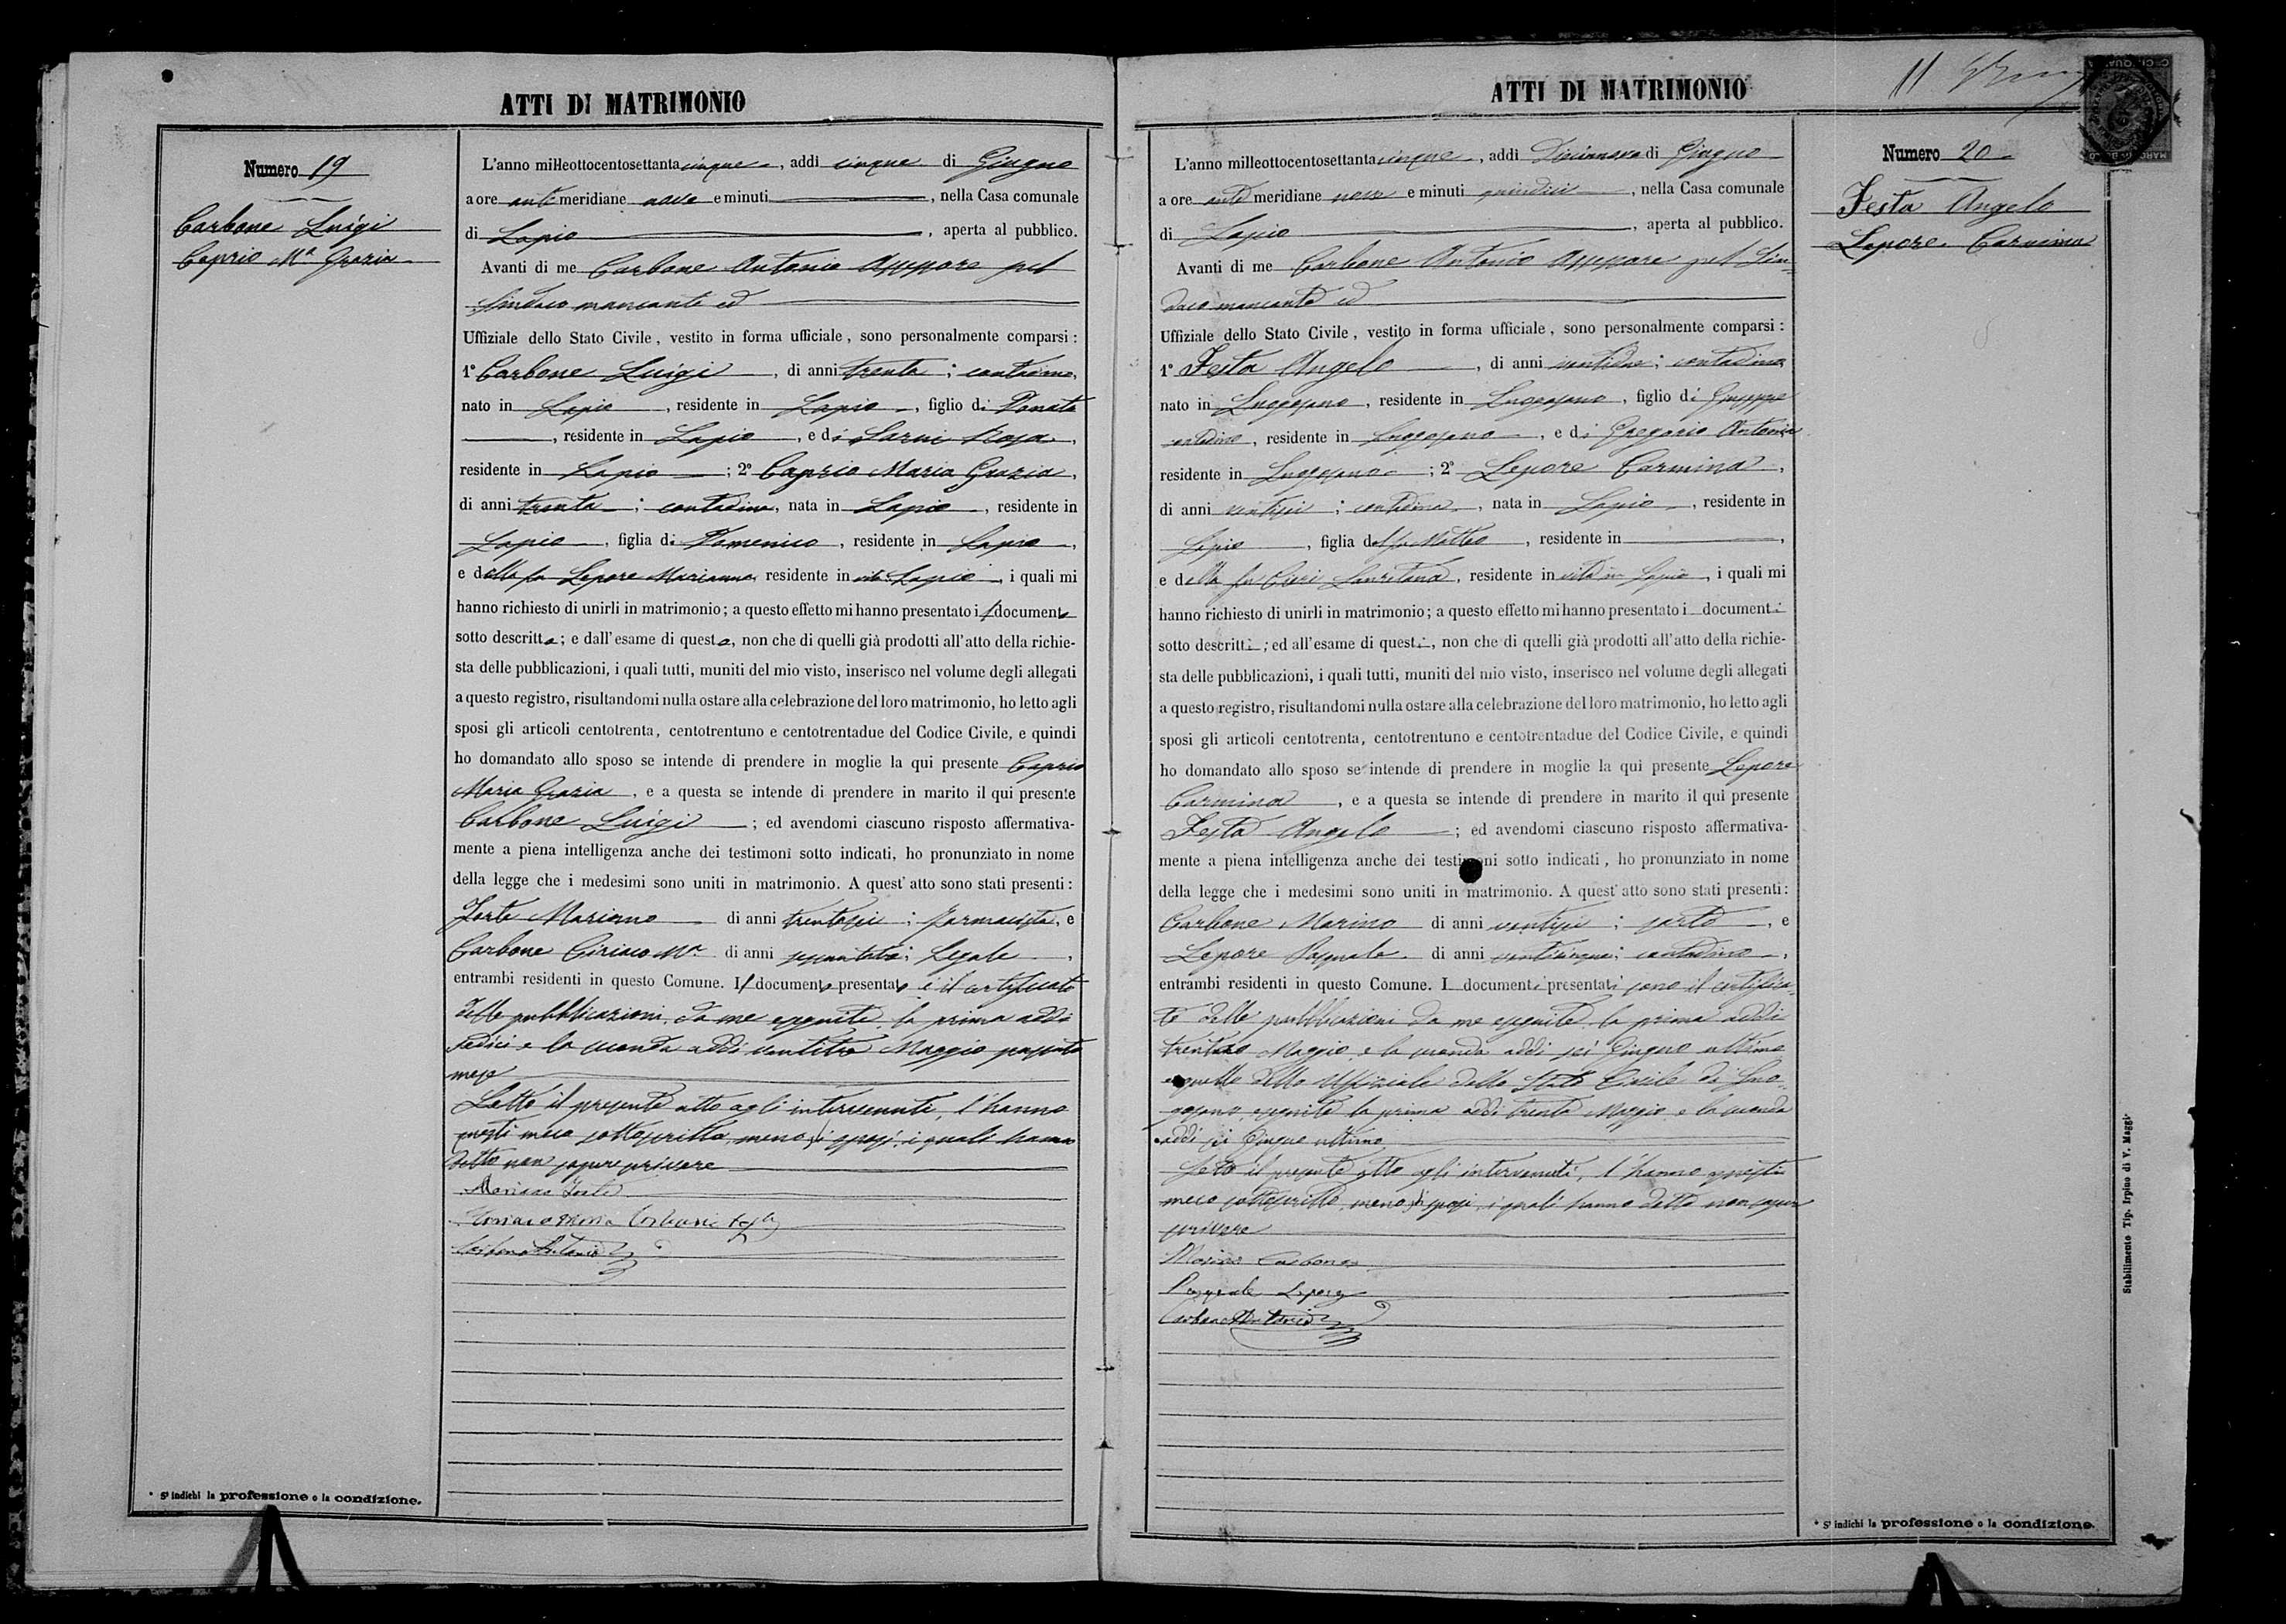 ATTI DI MATRIMONIO
Numero 19
Carbone Luigi
Caprio Mª Grazia
L'anno milleottocentosettantacinque, addì cinque di Giugno
a ore anti meridiane nove e minuti, nella Casa comunale
di Lapio, aperta al pubblico.
Avanti di me Carbone Antonio Assessore pel
Sindaco mancante ed
Uffiziale dello Stato Civile, vestito in forma ufficiale, sono personalmente comparsi:
1º Carbone Luigi, di anni trenta; contadino,
nato in Lapio, residente in Lapio, figlio di Donato
, residente in Lapio, e di Sarni Rosa,
residente in Lapio; 2º Caprio Maria Grazia,
di anni trenta; contadina, nata in Lapio, residente in
Lapio, figlia di Domenico, residente in Lapio,
e della fu Lepore Marianna, residente in vita Lapio, i quali mi
hanno richiesto di unirli in matrimonio; a questo effetto mi hanno presentato il documento
sotto descritto; e dall'esame di questo, non che di quelli già prodotti all'atto della richie-
sta delle pubblicazioni, i quali tutti, muniti del mio visto, inserisco nel volume degli allegati
a questo registro, risultandomi nulla ostare alla celebrazione del loro matrimonio, ho letto agli
sposi gli articoli centotrenta, centotrentuno e centotrentadue del Codice Civile, e quindi
ho domandato allo sposo se intende di prendere in moglie la qui presente Caprio
Maria Grazia, e a questa se intende di prendere in marito il qui presente
Carbone Luigi; ed avendomi ciascuno risposto affermativa-
mente a piena intelligenza anche dei testimoni sotto indicati, ho pronunziato in nome
della legge che i medesimi sono uniti in matrimonio. A quest'atto sono stati presenti:
Forte Mariano di anni trentasei; farmacista, e
Carbone Ciriaco Mª di anni; Legale,
entrambi residenti in questo Comune. Il documento presentato è il certificato
delle pubblicazioni da me eseguite la prima addì
sedici e la seconda addì ventitre Maggio passato
mese
Letto il presente atto agli intervenuti, l'hanno
questi meco sottoscritto, meno gli sposi, i quali hanno
detto non sapere scrivere
Mariano Forte
Ciriaco Maria Carbone
Carbone Antonio
* Si indichi la professione o la condizione.
ATTI DI MATRIMONIO
11
Numero 20
Festa Angelo
Lepore Carmina
L'anno milleottocentosettantacinque, addì Diciannove di Giugno
a ore anti meridiane nove e minuti quindici, nella Casa comunale
di Lapio, aperta al pubblico.
Avanti di me Carbone Antonio Assessore pel Sin-
daco mancante ed
Uffiziale dello Stato Civile, vestito in forma ufficiale, sono personalmente comparsi:
1º Festa Angelo, di anni ventidue; contadino,
nato in Luogosano, residente in Luogosano, figlio di Giuseppe
contadino, residente in Luogosano, e di Gregorio Antonia
residente in Luogosano; 2º Lepore Carmina,
di anni ventisei; contadina, nata in Lapio, residente in
Lapio, figlia del fu Matteo, residente in,
e della fu Cieri Lauretana, residente in vita in Lapio, i quali mi
hanno richiesto di unirli in matrimonio; a questo effetto mi hanno presentato i documenti
sotto descritti; ed all'esame di questi, non che di quelli già prodotti all'atto della richie-
sta delle pubblicazioni, i quali tutti, muniti del mio visto, inserisco nel volume degli allegati
a questo registro, risultandomi nulla ostare alla celebrazione del loro matrimonio, ho letto agli
sposi gli articoli centotrenta, centotrentuno e centotrentadue del Codice Civile, e quindi
ho domandato allo sposo se intende di prendere in moglie la qui presente Lepore
Carmina, e a questa se intende di prendere in marito il qui presente
Festa Angelo; ed avendomi ciascuno risposto affermativa-
mente a piena intelligenza anche dei testimoni sotto indicati, ho pronunziato in nome
della legge che i medesimi sono uniti in matrimonio. A quest'atto sono stati presenti:
Carbone Marino di anni ventisei; sarto, e
Lepore Pasquale di anni venticinque; contadino,
entrambi residenti in questo Comune. I documenti presentati sono il certifica-
to delle pubblicazioni da me eseguite la prima addì
trenta Maggio e la seconda addì sei Giugno ultimo
e quello dello Uffiziale dello Stato Civile di Luo-
gosano, eseguite la prima addì trenta Maggio e la seconda
addì sei Giugno ultimo
Letto il presente atto agli intervenuti, l'hanno questi
meco sottoscritto, meno gli sposi, i quali hanno detto non saper
scrivere
Marino Carbone
Pasquale Lepore
Carbone Antonio
* Si indichi la professione o la condizione.
Stabilimento Tip. Irpino di V. Maggi